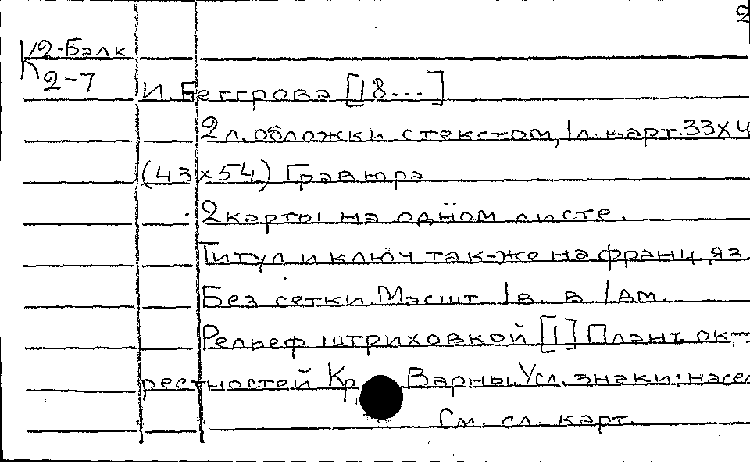 2
К2-Балк
2-7
И. Беггрова [18...]
2 л. обложки с текстом, 1 л. карт. 33х4
(43х54) Гравюра
2 карты на одном листе.
Титул и ключ так-же на франц. яз.
Без сетки. Масшт. 1 в. в 1 дм.
Рельеф штриховкой [1] Планъ ок-
рестностей Кр. Варны. Усл. знаки: насел
См. сл. карт.